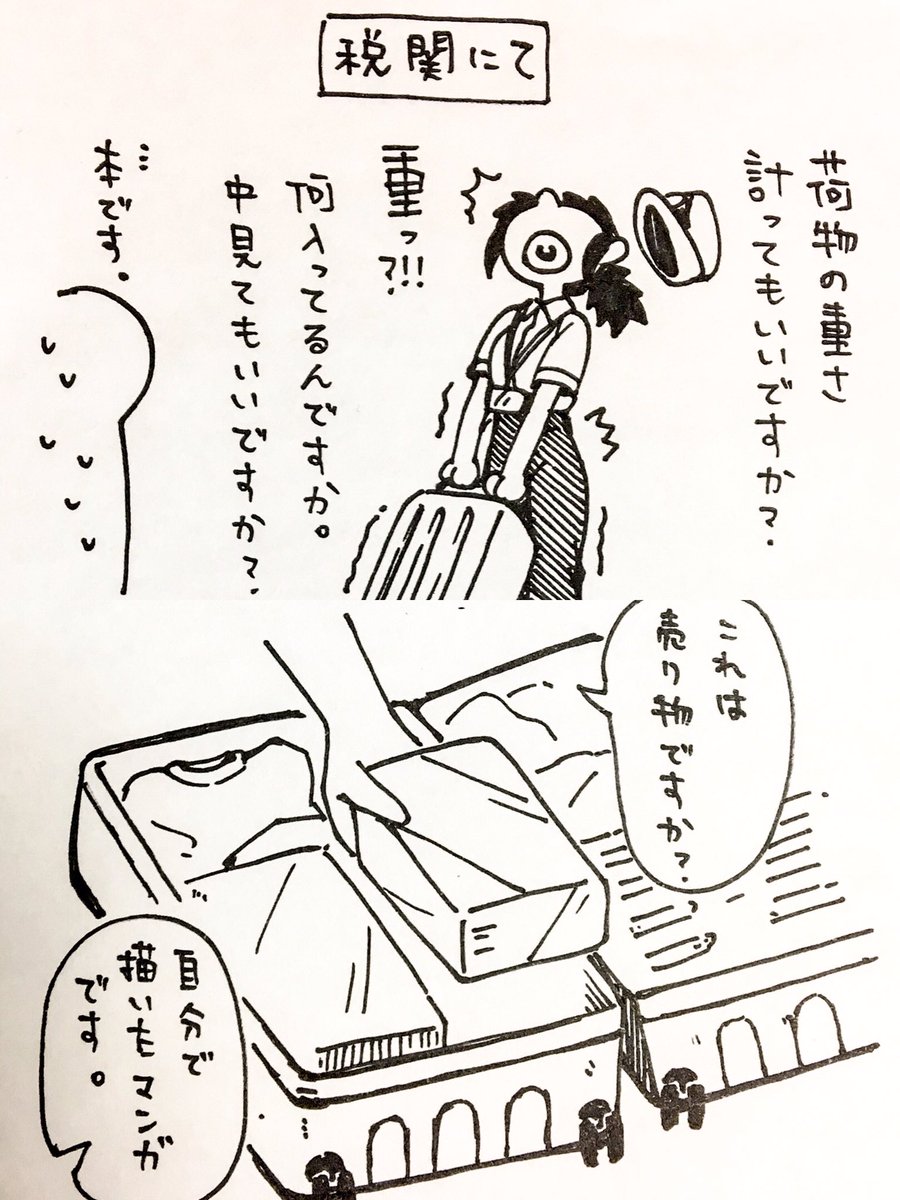 税関にて
荷物の重さ
計ってもいいですか?
重っ?!!
何入ってるんですか。
中見てもいいですか?
本です。
これは
売り物ですか?
自分で
描いたマンガ
です。